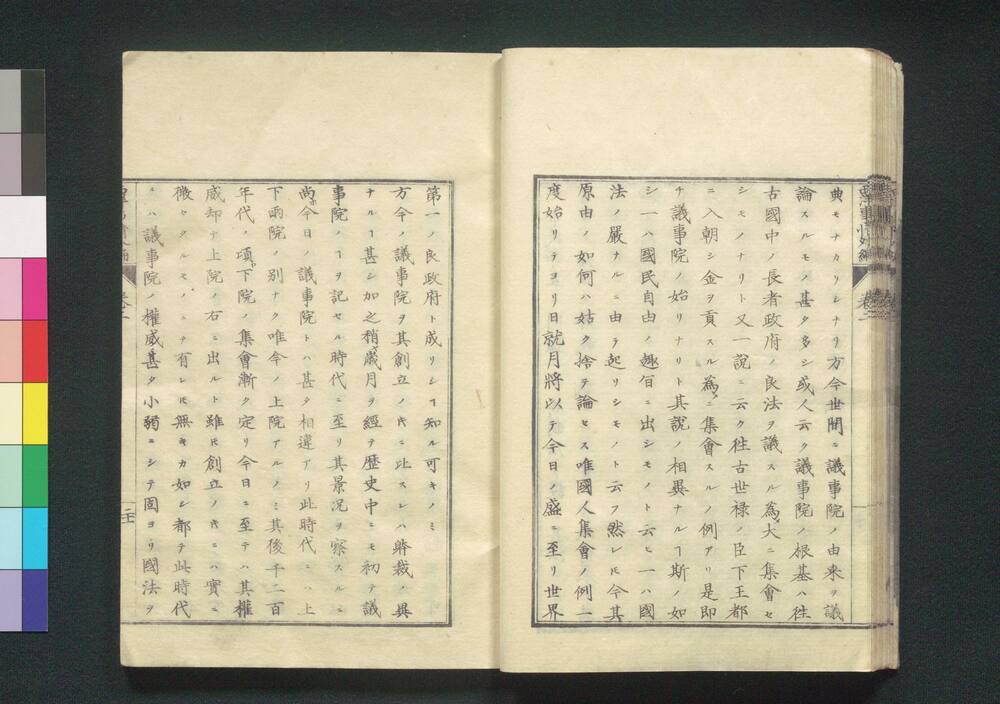 典モナカリシナリ方今世間ニ議事院ノ由来ヲ議
論スルモノ甚タ多シ或人云ク議事院ノ根基ハ往
古國中ノ長者政府ノ良法ヲ議スル為大ニ集會セ
シモノナリト又一説ニ云ク往古世禄ノ臣下王都
ニ入朝シ金ヲ貢スル為ニ集會スルノ例アリ是即
チ議事院ノ始リナリト其説ノ相異ナルヿ斯ノ如
シ一ハ國民自由ノ趣旨ニ出シモノト云ヒ一ハ國
法ノ嚴ナルニ由テ起リシモノト云フ然レ𪜈今其
原由ノ如何ハ姑ク捨テ論セス唯國人集會ノ例一
度始リテヨリ日就月將以テ今日ノ盛ニ至リ世界
第一ノ良政府ト成リシヿ知ル可キノミ
方今ノ議事院ヲ其創立ノ𪜈ニ比スレハ體裁ノ異
ナルヿ甚シ加之稍歳月ヲ經テ歴史中ニモ初テ議
事院ノヿヲ記セル時代ニ至リ其景况ヲ察スルニ
尚今日ノ議事院トハ甚タ相違アリ此時代ニハ上
下兩院ノ別ナク唯今ノ上院アルノミ其後千二百
年代ノ項下院ノ集會漸ク定リ今日ニ至テハ其權
威却テ上院ノ右ニ出ルト雖𪜈創立ノ𪜈ニハ實ニ
微々タルモノニテ有レ𪜈無キカ如シ都テ此時代
ニハ議事院ノ權威甚タ小弱ニシテ固ヨリ國法ヲ
卷三
二十